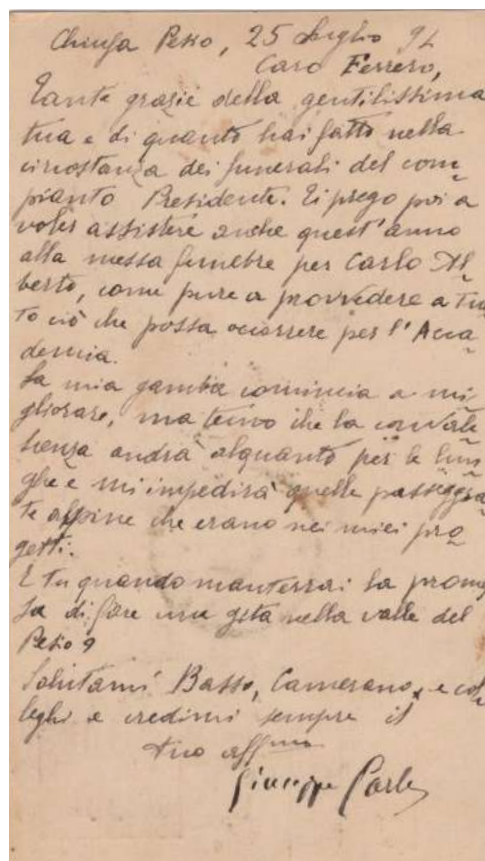 Chiusa Pesio, 25 Luglio 91
Caro Ferrero,
Tante grazie della gentilissima
tua e di quanto hai fatto nella
circostanza dei funerali del com-
pianto Presidente. Ti prego poi a
voler assistere anche quest'anno
alla messa funebre per Carlo Al-
berto, come pure a provvedere a tut-
to ciò che possa occorrere per l'Acca-
demia.
La mia gamba comincia a mi-
gliorare, ma temo che la convale-
scenza andrà alquanto per le lun-
ghe e mi impedirà quelle passeggia-
te alpine che erano nei miei pro-
getti.
E tu quando manterrai la promes-
sa di fare una gita nella valle del
Pesio?
Salutami Basso, Camerano, e col-
leghi e credimi sempre il
tuo affmo
Giuseppe Carle